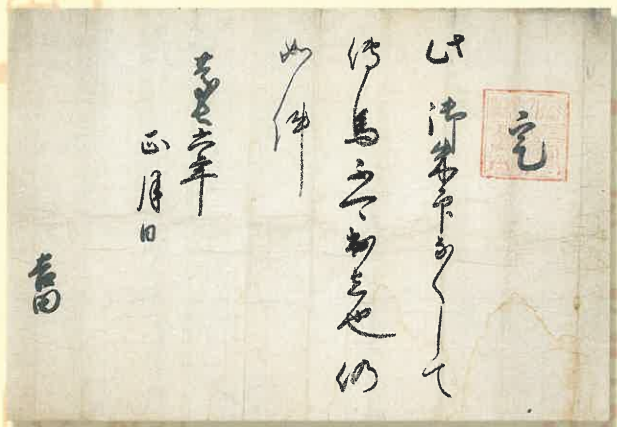 定
此 御朱印なくして
傳馬不可出者也仍
如件
慶長六年
正月日
吉田